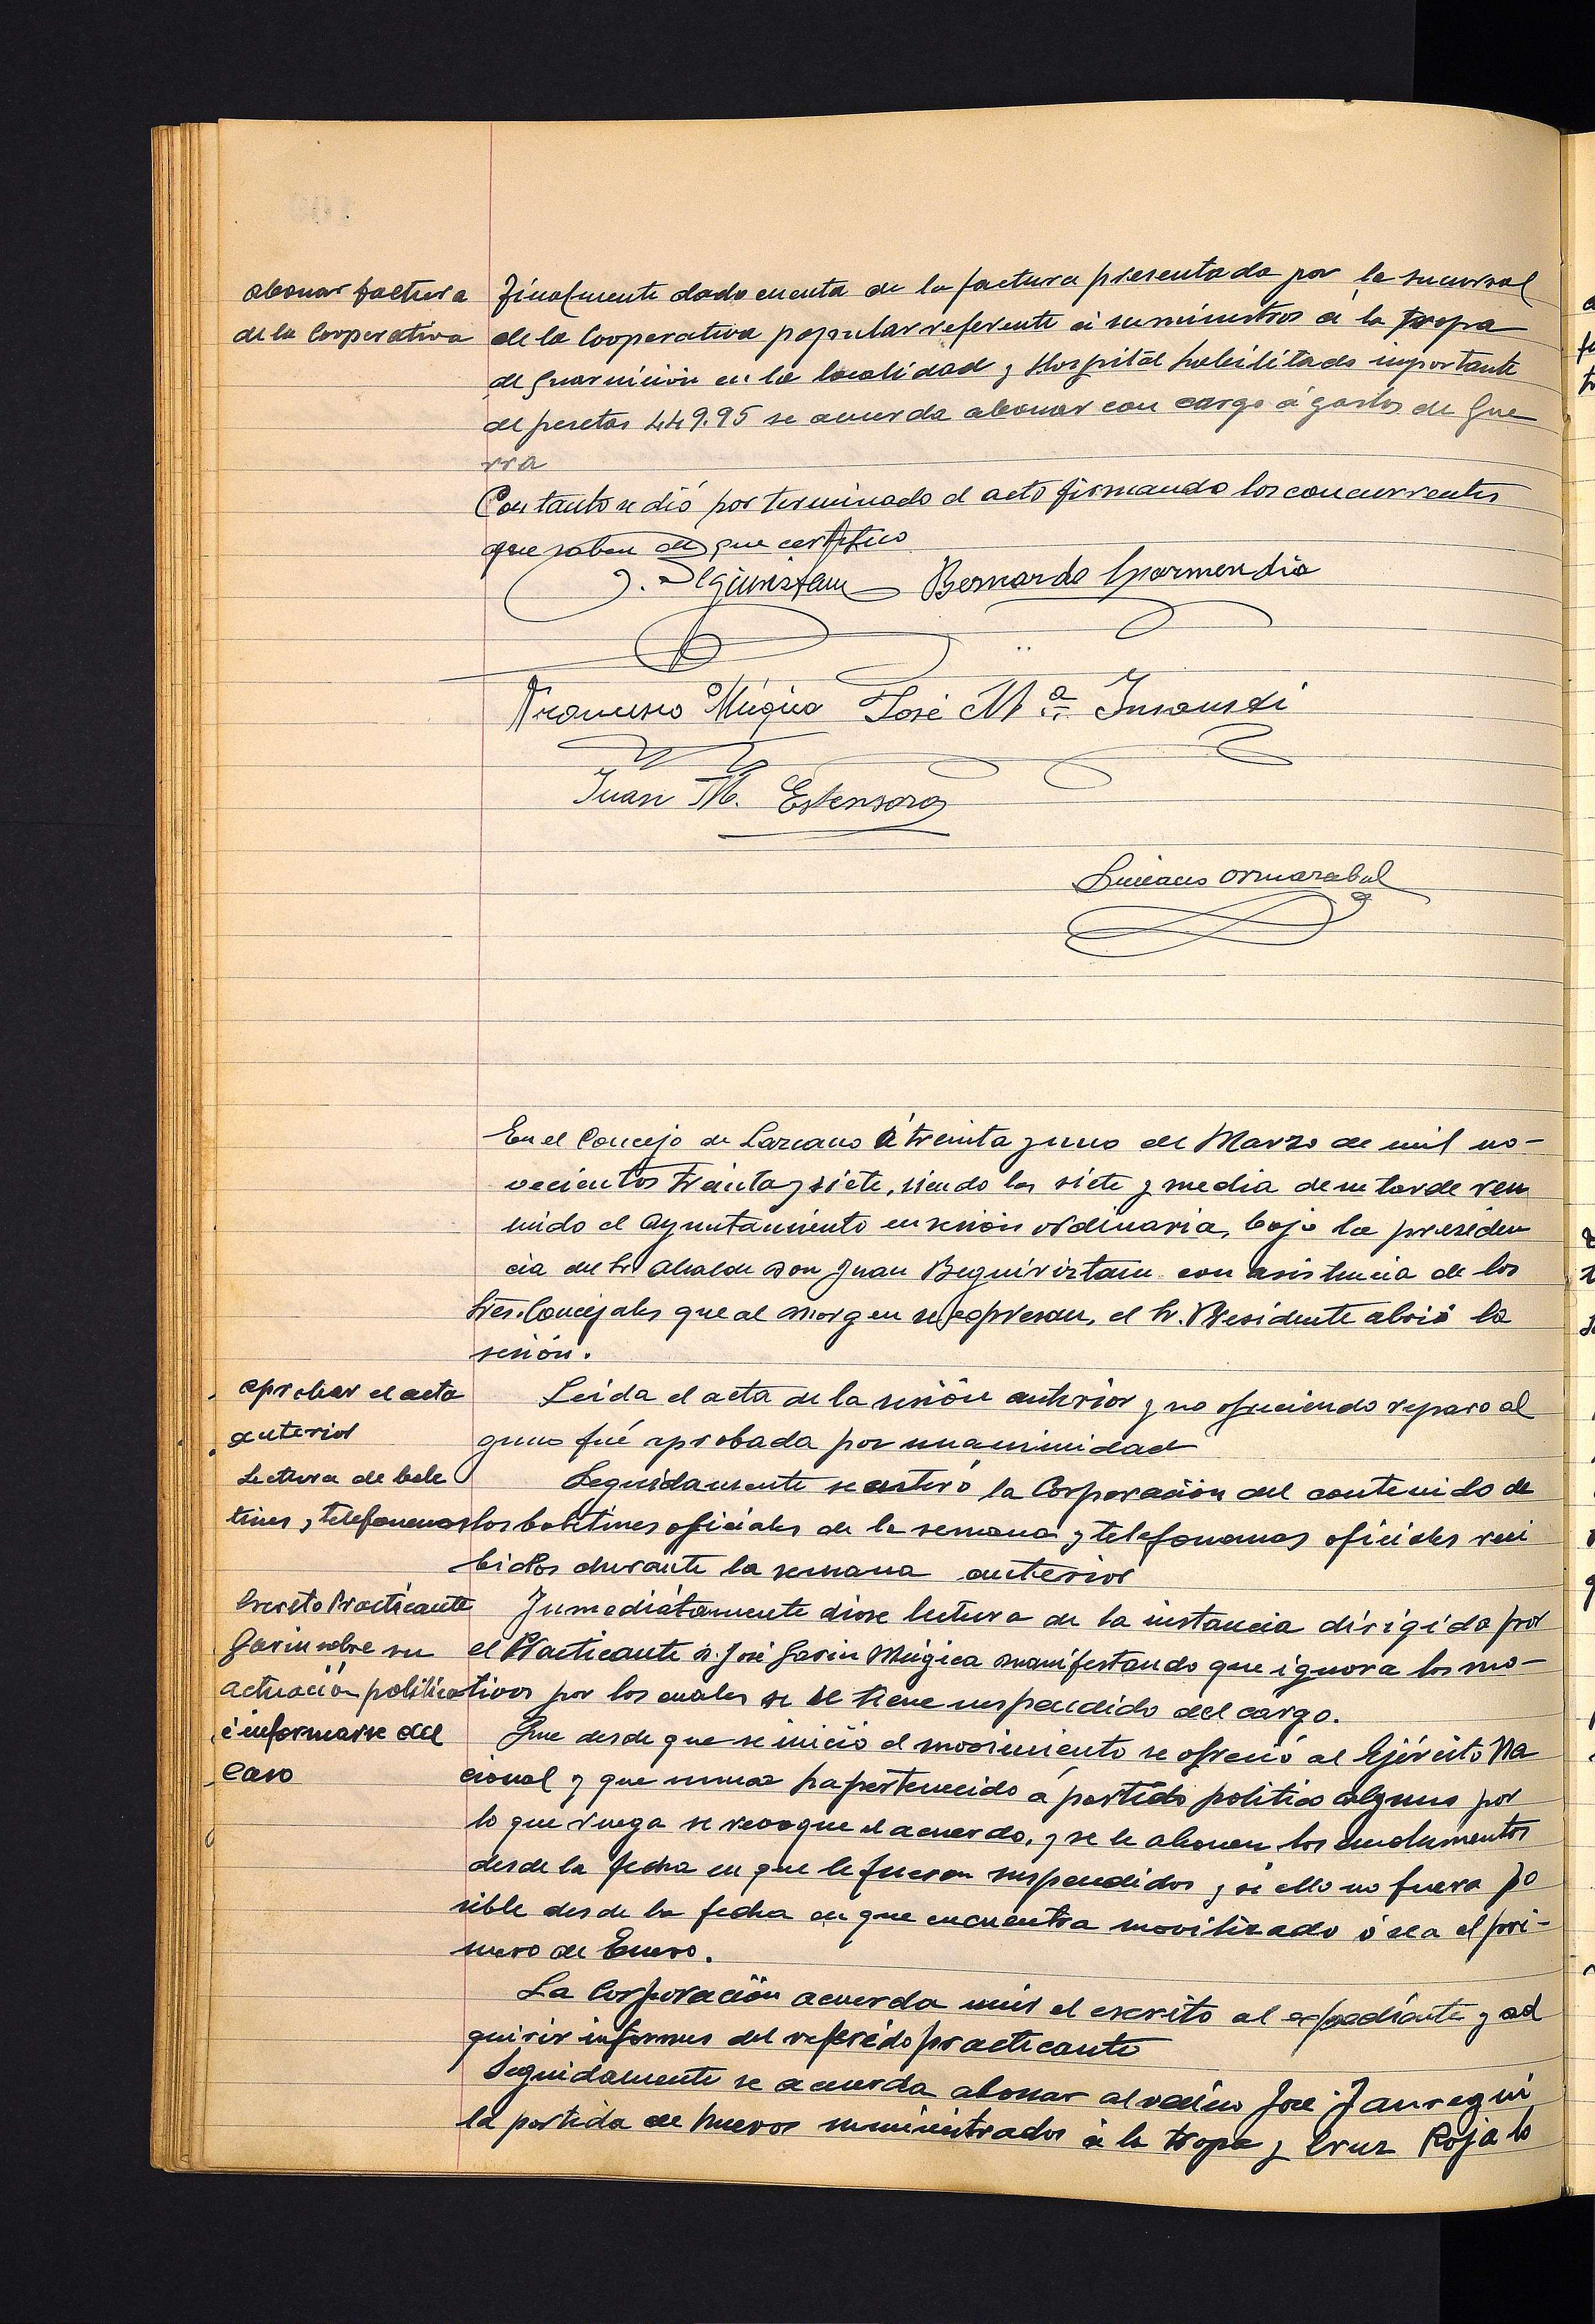 abonar factura
de la Cooperativa
Finalmente dado cuenta de la factura presentada por la sucursal
de la Cooperativa popular referente á suministros á la tropa
de guarnición en la localidad y Hospital habilitado importante
de pesetas 449.95 se acuerda abonar con cargo á gastos de Gue
rra
Con tanto se dió por terminado el acto firmando los concurrentes
que saben de que certifico
Bernardo Garmendia
Francisco Múgica José Mª Insausti
Juan M. Estensoro
Luciano Ormazabal
En el Concejo de Lazcano á treinta y uno de Marzo de mil no-
vecientos treinta y siete, siendo las siete y media de su tarde reu
nido el Ayuntamiento en sesión ordinaria, bajo la presiden
cia del Sr. Alcalde Don Juan Beguiristain con asistencia de los
Sres. Concejales que al margen se expresan, el Sr. Presidente abrió la
sesión.
aprobar el acta
anterior
Leida el acta de la sesión anterior y no ofreciendo reparo al
guno fué aprobada por unanimidad
Lectura de bole
tines y telefonemas
Seguidamente se enteró la Corporación del contenido de
los boletines oficiales de la semana y telefonemas oficiales reci
bidos durante la semana anterior
Escrito Practicante
Garin sobre su
actuación politica
é informarse del
caso
Inmediatamente diose lectura de la instancia dirigida por
el Practicante D. José Garin Múgica manifestando que ignora los mo-
tivos por los cuales se le tiene suspendido del cargo.
Que desde que se inició el movimiento se ofreció al Ejército Na
cional y que nunca ha pertenecido á partido politico alguno por
lo que ruega se revoque el acuerdo, y se le abonen los emolumentos
desde la fecha en que le fueron suspendidos y si ello no fuera po
sible desde la fecha en que encuentra movilizado ó sea el pri-
mero de Enero.
La Corporación acuerda unir el escrito al expediente y ad
quirir informes del referido practicante
Seguidamente se acuerda abonar al vecino José Jauregui
la partida de huevos suministrados á la tropa y Cruz Roja lo